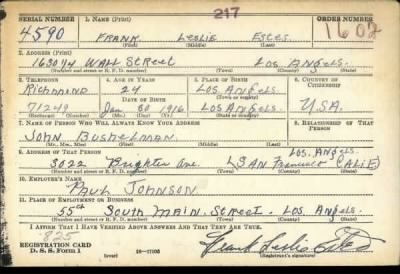 217
SERIAL NUMBER 1. Name (Print) ORDER NUMBER
4590 FRANK Leslie Estes 1602
(First) (Middle) (Last)
2. Address (Print)
1630 1/4 WALL STReet Los Angels.
(Number and street or R. F. D. number) (Town) (County) (State)
3. Telephone 4. Age in Years 5. Place of Birth 6. Country of Citizenship
Richmond 24 Los Angels.
Date of Birth (Town or county)
71249 Jan 30 1916 Los Angels U.S.A.
(Exchange) (Number) (Mo.) (Day) (Yr.) (State or country)
7. Name of Person Who Will Always Know Your Address 8. Relationship of That Person
John Bushelman
(Mr., Mrs., Miss) (First) (Middle) (Last)
9. Address of That Person Los. Angels.
3022 Ave (SAN Francisco CALIF)
(Number and street or R. F. D. number) (Town) (County) (State)
10. Employer's Name
PAUL JOHNSON
11. Place of Employment or Business
55th South MAIN. Street. Los Angels.
(Number and street or R. F. D. number) (Town) (County) (State)
I Affirm That I Have Verified Above Answers and That They Are True.
825
REGISTRATION CARD
D. S. S. Form 1 (over) 16-17105 Frank Leslie Estes
(Registrant's signature)